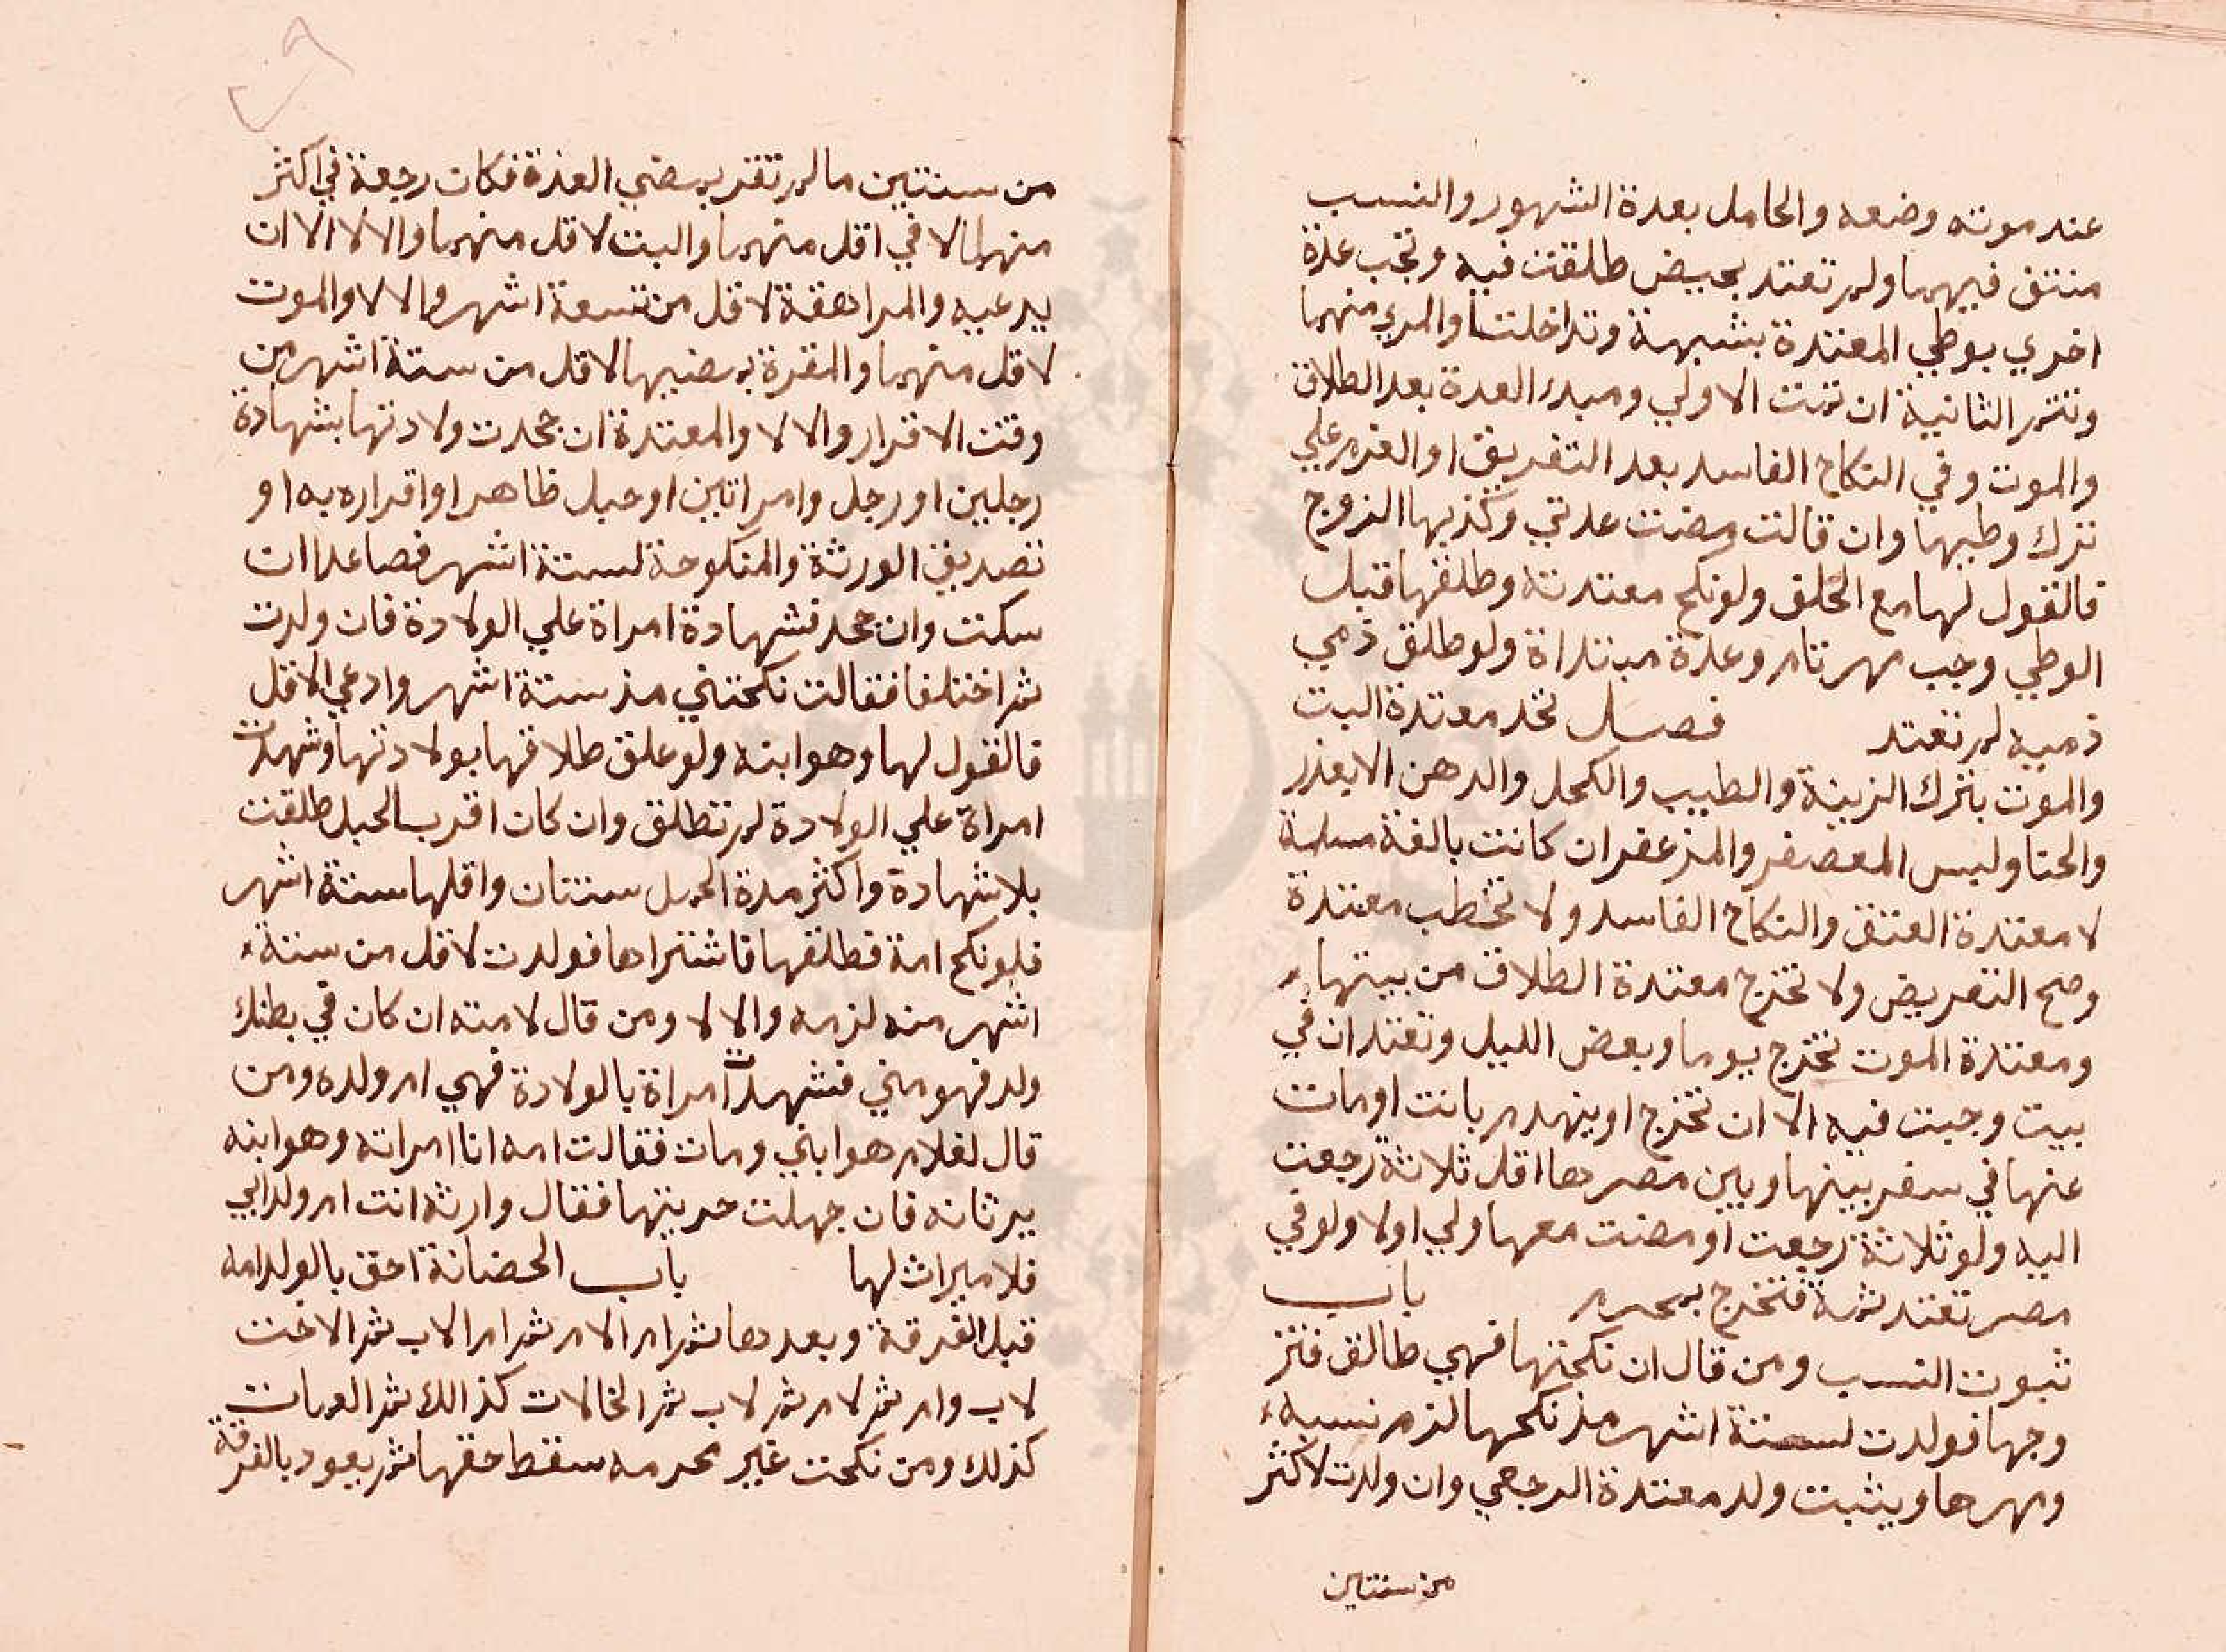 عند موته وضعه والحامل بعدة الشهور والنسب
منتف فيهما ولم تعتد بحيض طلقت فيه وتجب عدة
اخري بوطي المعتدة بشبهة وتداخلتا والمري منهما
وتتم الثانية ان تمت الاولي ومبدء العدة بعد الطلاق
والموت وفي النكاح الفاسد بعد التفريق او العزم علي
ترك وطيها وان قالت مضت عدتي وكذبها الزوج
فالقول لها مع الحلف ولو نكح معتدته وطلقها قبل
الوطي وجب مهر تام وعدة مبتداة ولو طلق ذمي
ذميه لم تعتد فصل تحد معتدة البت
والموت بترك الزينة والطيب والكحل والدهن الا بعذر
والحنا ولبس المعصفر والمزعفر ان كانت بالغة مسلمة
لا معتدة العتق والنكاح الفاسد ولا تخطب معتدة
وصح التعريض ولا تخرج معتدة الطلاق من بيتها
ومعتدة الموت تخرج يوما وبعض الليل وتعتدان في
بيت وجبت فيه الا ان تخرج او ينهدم بانت او مات
عنها في سفر بينها وبين مصرها اقل ثلاثة رجعت
اليه ولو ثلاثة رجعت او مضت معها ولي اولا ولو في
مصر تعتد ثمة فتخرج بمحرم باب
ثبوت النسب ومن قال ان نكحتها فهي طالق فتز
وجها فولدت لستة اشهر مذ نكحها لزم نسبه
ومهرها ويثبت ولد معتدة الرجعي وان ولدت لاكثر
من سنتين
من سنتين ما لم تقر بمضي العدة فكان رجعة في اكثر
منهما لا في اقل منهما والبت لاقل منهما والا لا الا ان
يدعيه والمراهقة لاقل من تسعة اشهر والا لا والموت
لاقل منهما والمقرة بمضيها لاقل من ستة اشهر من
وقت الاقرار والا لا والمعتدة ان جحدت ولادتها بشهادة
رجلين او رجل وامراتين او حبل ظاهر او اقراره به او
تصديق الورثة والمنكوحة لستة اشهر فصاعدا ان
سكت وان جحد فشهادة امراة علي الولادة فان ولدت
ثم اختلفا فقالت نكحتني مذ ستة اشهر وادعي الاقل
فالقول لها وهو ابنه ولو علق طلاقها بولادتها وشهدت
امراة علي الولادة لم تطلق وان كان اقر بالحبل طلقت
بلا شهادة واكثر مدة الحمل سنتان واقلها ستة اشهر
فلو نكح امة فطلقها فاشتراها فولدت لاقل من ستة
اشهر منه لزمه والا لا ومن قال لامته ان كان في بطنك
ولد فهو مني فشهدت امراة بالولادة فهي ام ولده ومن
قال لغلام هو ابني ومات فقالت امه انا امراته وهو ابنه
يرثانه فان جهلت حريتها فقال وارثه انت ام ولد ابي
فلا ميراث لها باب الحضانة احق بالولد امه
قبل الفرقة وبعدها ثم ام الام ثم ام الاب ثم الاخت
لاب وام ثم لام ثم لاب ثم الخالات كذالك ثم العمات
كذلك ومن نكحت غير محرمه سقط حقها ثم يعود بالفرقة